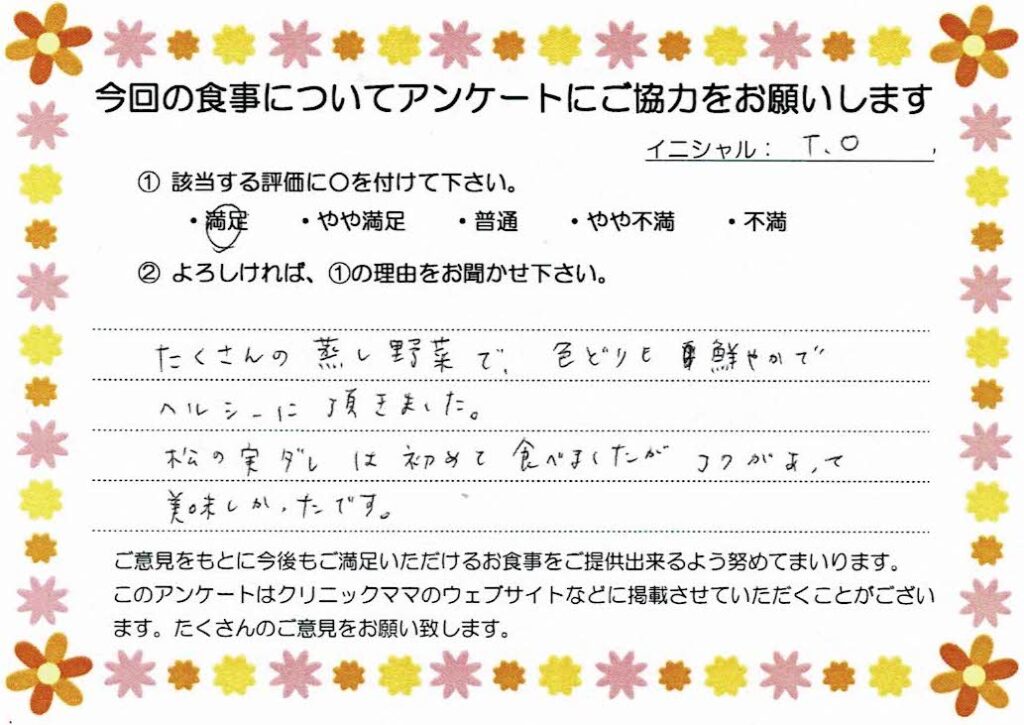 今回の食事についてアンケートにご協力をお願いします
イニシャル： T.O
① 該当する評価に〇を付けて下さい。
・満足 ・やや満足 ・普通 ・やや不満 ・不満
② よろしければ、①の理由をお聞かせ下さい。
たくさんの蒸し野菜で、色どりも鮮やかで
ヘルシーに頂きました。
松の実ダレは初めて食べましたがコクがあって
美味しかったです。
ご意見をもとに今後もご満足いただけるお食事をご提供出来るよう努めてまいります。
このアンケートはクリニックママのウェブサイトなどに掲載させていただくことがござい
ます。たくさんのご意見をお願い致します。